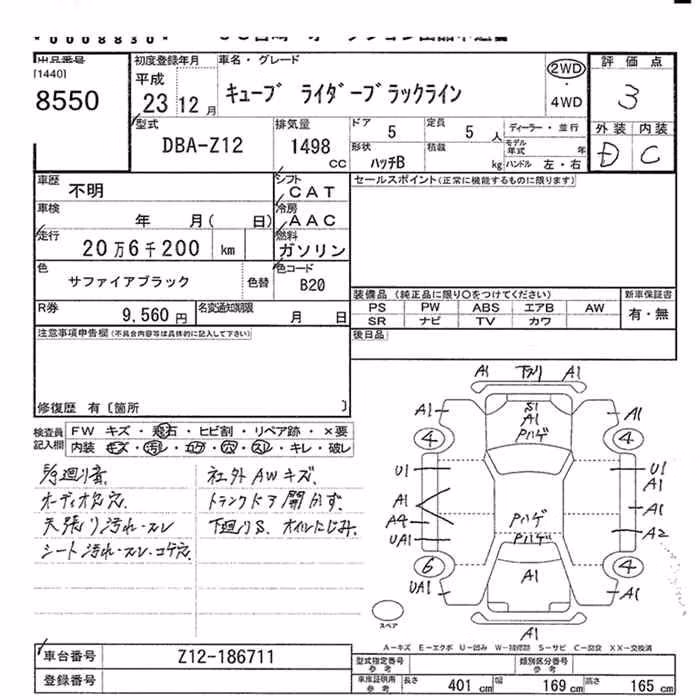 *0008830*
出品番号
[1440]
8550
初度登録年月
平成
23 12 月
車名・グレード
キューブ ライダーブラックライン
2WD
・
4WD
評価点
3
外装 内装
D C
型式
DBA-Z12
排気量
1498
cc
ドア
5
定員
5 人
形状
ハッチB
積載
kg
ディーラー・並行
モデル年式 年
ハンドル 左・右
車歴
不明
シフト
CAT
車検
年 月( 日)
冷房
AAC
走行
20万6千200 km
燃料
ガソリン
色
サファイアブラック
色替
色コード
B20
R券
9,560 円
名変通知期限
月 日
セールスポイント(正常に機能するものに限ります)
装備品 (純正品に限り○をつけてください)
新車保証書
PS PW ABS エアB AW
SR ナビ TV カワ
有・無
後日品
注意事項申告欄(不具合内容等は具体的に記入して下さい)
修復歴 有〔箇所 〕
検査員記入欄
FW キズ・飛石・ヒビ割・リペア跡・×要
内装 キズ・汚れ・コゲ・穴・スレ・キレ・破レ
オーディオ欠穴
天張り汚れ・スレ
シート汚れ・スレ・コゲ穴
社外AWキズ
トランクドア開かず
下廻りS、オイルにじみ
A1 下カリ A1
A1 S1 A1
A1
Pハゲ
4 4
U1 U1
A1 A1
A1
A4 Pハゲ A2
UA1 Pハゲ
6 4
UA1 A1 A1
A1
スペア
A-キズ E-エクボ U-凹み W-補修跡 S-サビ C-腐食 XX-交換済
車台番号
Z12-186711
登録番号
型式指定番号
参考
類別区分番号
参考
車庫証明用
参考
長さ 401 cm 幅 169 cm 高さ 165 cm